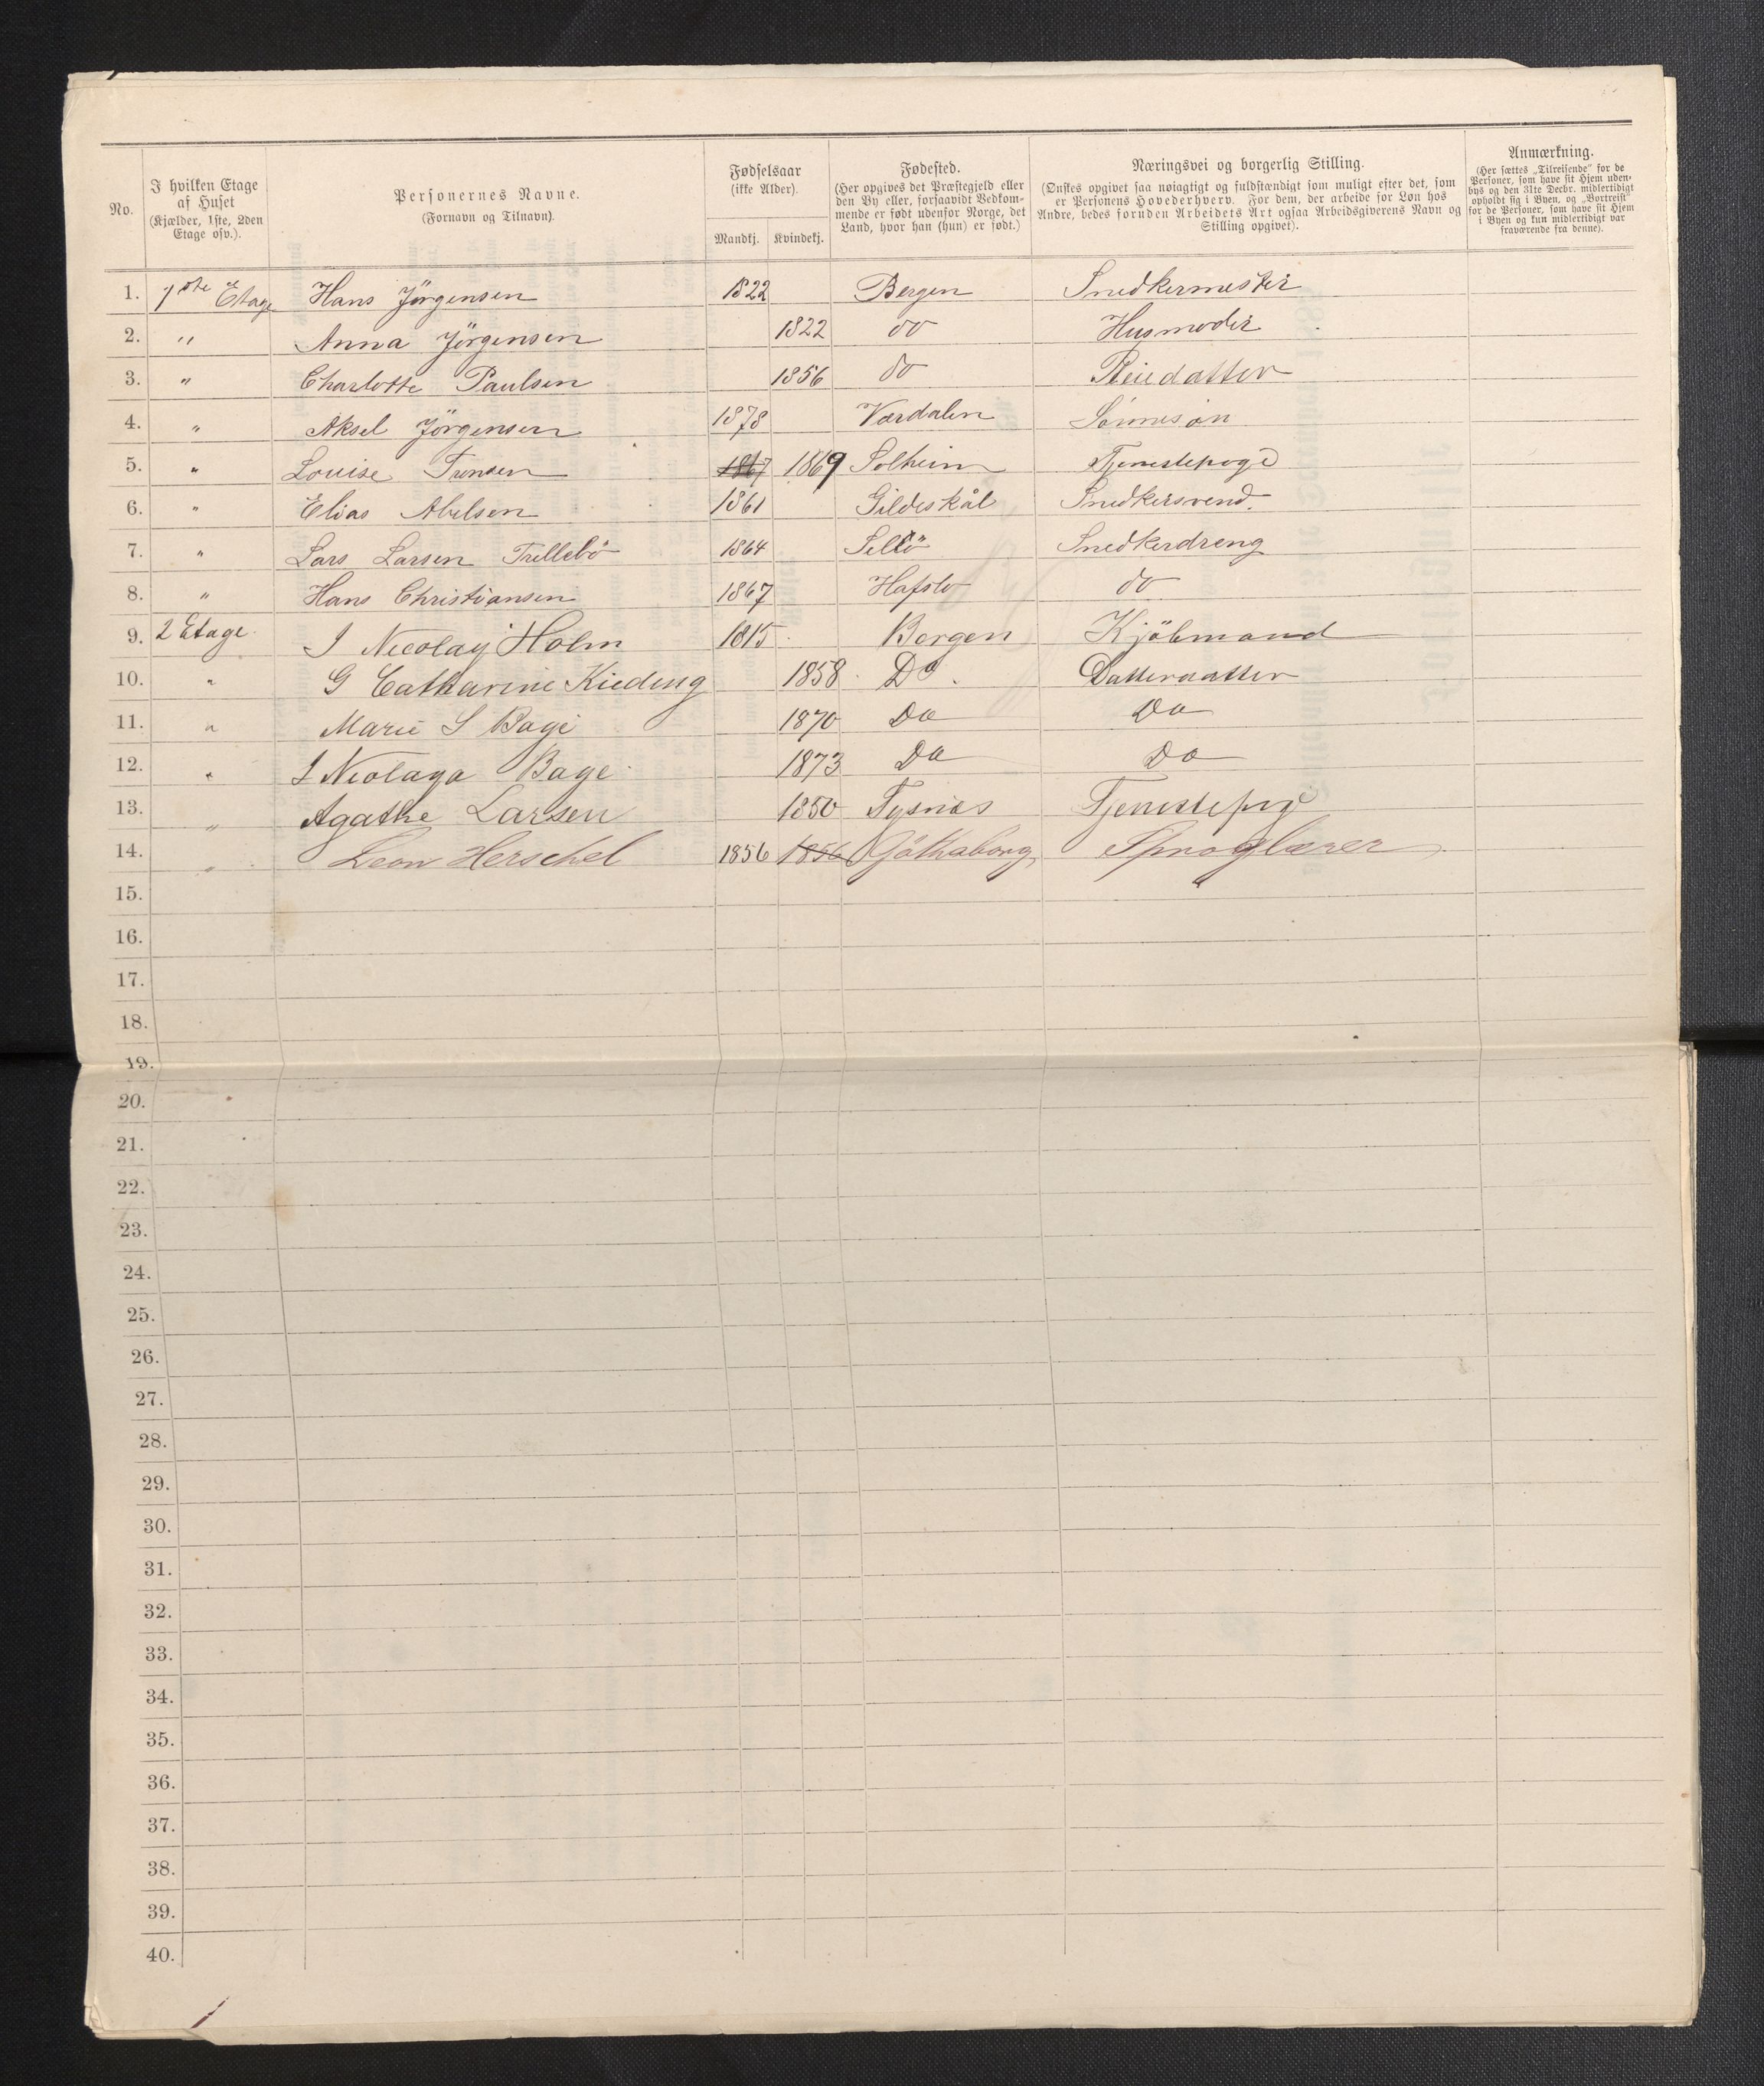 No.
I hvilken Etage af Huset (Kjælder, 1ste, 2den Etage osv.).
Personernes Navne. (Fornavn og Tilnavn).
Fødselsaar (ikke Alder). Mandkj. Kvindekj.
Fødested. (Her opgives det Præstegjeld eller den By eller, forsaavidt Vedkommende er født udenfor Norge, det Land, hvor han (hun) er født.)
Næringsvei og borgerlig Stilling. (Ønskes opgivet saa nøiagtigt og fuldstændigt som muligt efter det, som er Personens Hovederhverv. For dem, der arbeide for Løn hos Andre, bedes foruden Arbeidets Art ogsaa Arbeidsgiverens Navn og Stilling opgivet).
Anmærkning. (Her sættes „Tilreisende" for de Personer, som have sit Hjem udenbys og den 31te Decbr. midlertidigt opholdt sig i Byen, og „Bortreist" for de Personer, som have sit Hjem i Byen og kun midlertidigt var fraværende fra denne).
1. 1ste Etage Hans Jörgensen 1822 Bergen Snedkermester
2. " Anna Jörgensen 1822 do Husmoder
3. " Charlotte Paulsen 1856 do Pleiedatter
4. " Aksel Jörgensen 1878 Værdalen Sönnesön
5. " Louise 1867 1869 Solheim Tjenestepige
6. " Elias Abelsen 1861 Gildeskål Snedkersvend.
7. " Lars Larsen Trellebö 1864 Snedkerdreng
8. " Hans Christiansen 1867 Hafslo do
9. 2 Etage. J Nicolay Holm 1815 Bergen Kjöbmand
10. " G Catharine Kieding 1858 Do. Datterdatter
11. " Marie S Bage 1870 Do Do
12. " J Nicolaya Bage 1873 Do Do
13. " Agathe Larsen 1850 Tysnæs Tjenestepige
14. " Leon Herschel 1856 1856 Göthaborg Sproglærer
15.
16.
17.
18.
19.
20.
21.
22.
23.
24.
25.
26.
27.
28.
29.
30.
31.
32.
33.
34.
35.
36.
37.
38.
39.
40.